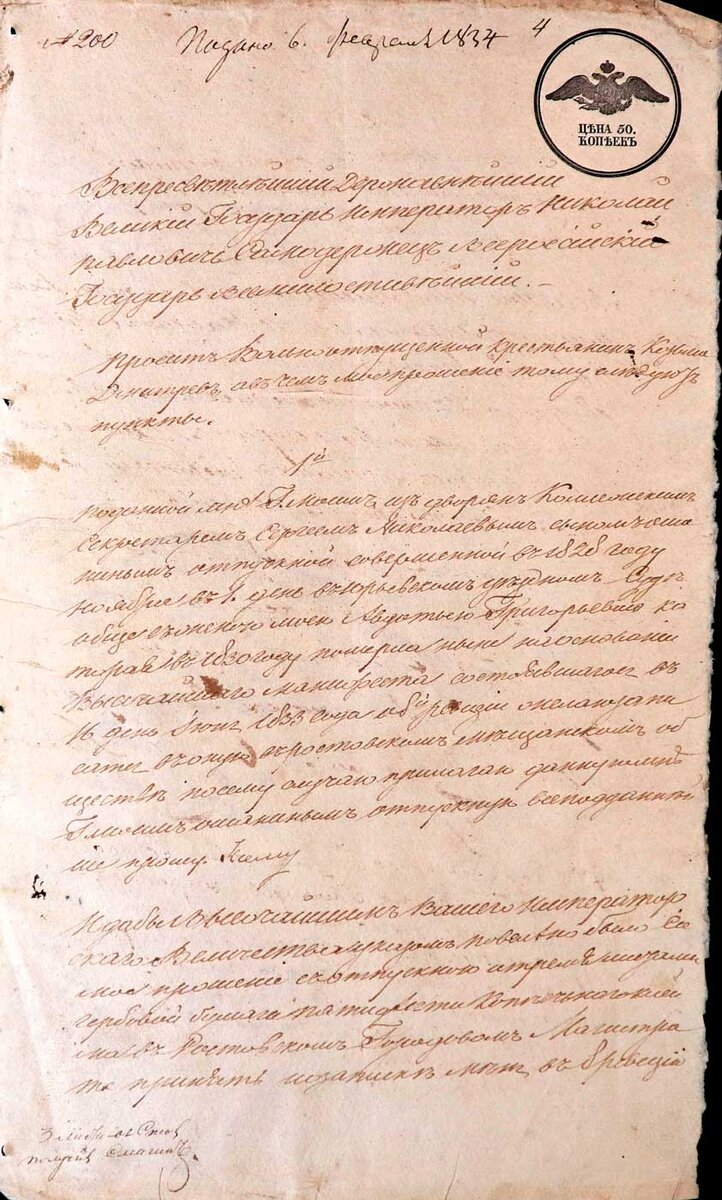 № 200 Подано 6. февраля 1834 4
ЦѢНА 50.
КОПѢЕКЪ
Всепресветлейшии Державнейшии
Великии Государь Император Николаи
павловичь Самодержецъ Всероссийскии
Государь Всемилостивейшии.
Просит Вольноотпущенной крестьянинъ Козьма
Дмитревъ, а в чем мое прошение тому следуютъ
пункты.
1й
поданной мне Гжею из дворян Коллежским
Секретарем Сергеем Николаевым сыном
отпускной совершенной в 1828 году
ноября в 1. день в Юрьевском уездном Суде
обще с женою моею Авдотьею Григорьевою ко
торая в 1830 году померла ныне на основании
Высочайшаго манифеста состоявшагося в
16 день 1833 года о 8й ревизии желаю запи
сатся в оную в ростовском мещанском об
ществе по сему случаю прилагаю данную мне
отпускную всеподданней
ше прошу. К сему
И дабы Высочайшим Вашего Император
скаго Величества указом повелено было сие
мое прошение с отпускною и тремя листами
гербовой бумаги пятидесяти копеечнаго
в Ростовском Городовом Магистра
те принять и записать меня в 8 ревизии
3 листа
получил